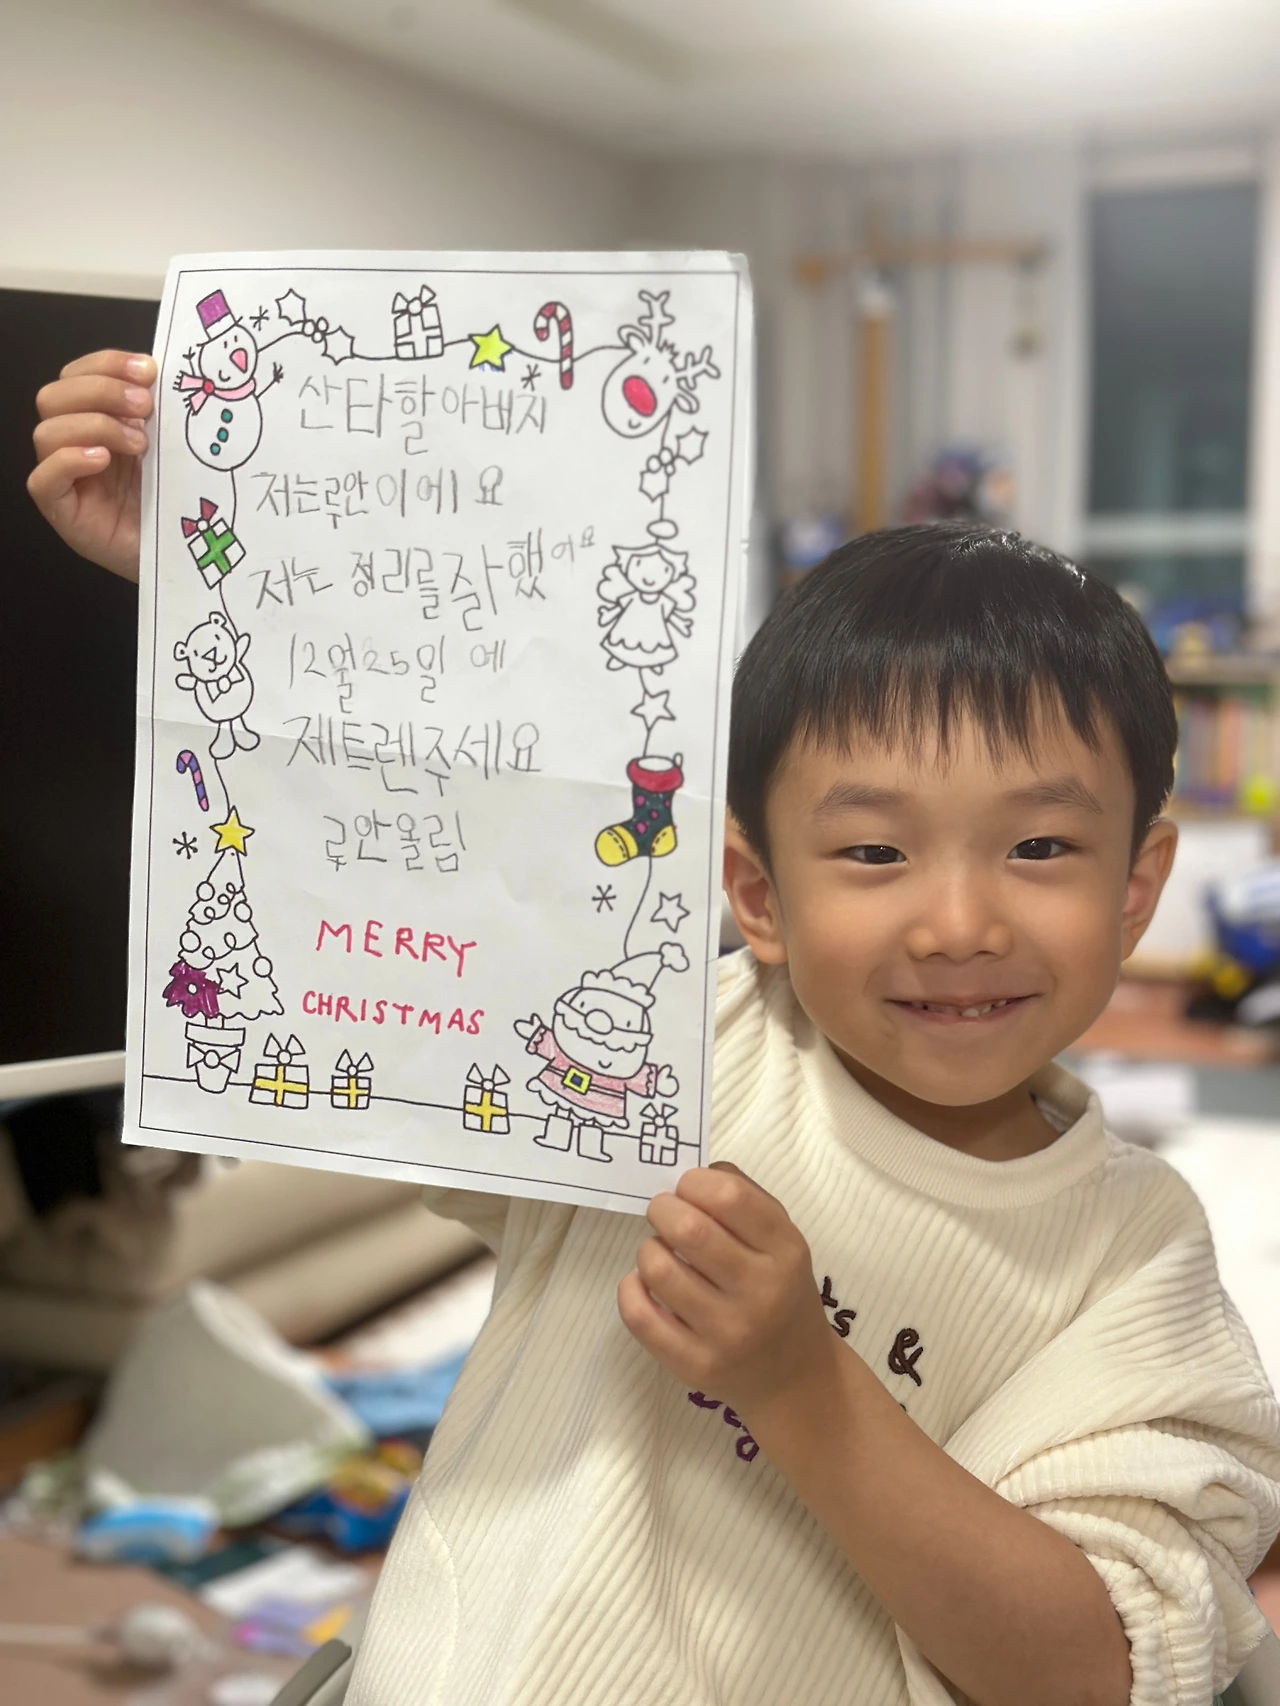 산타할아버지
저는루안이에요
저는 정리를잘했어요
12월25일 에
제트렌주세요
루안올림
MERRY
CHRISTMAS
&